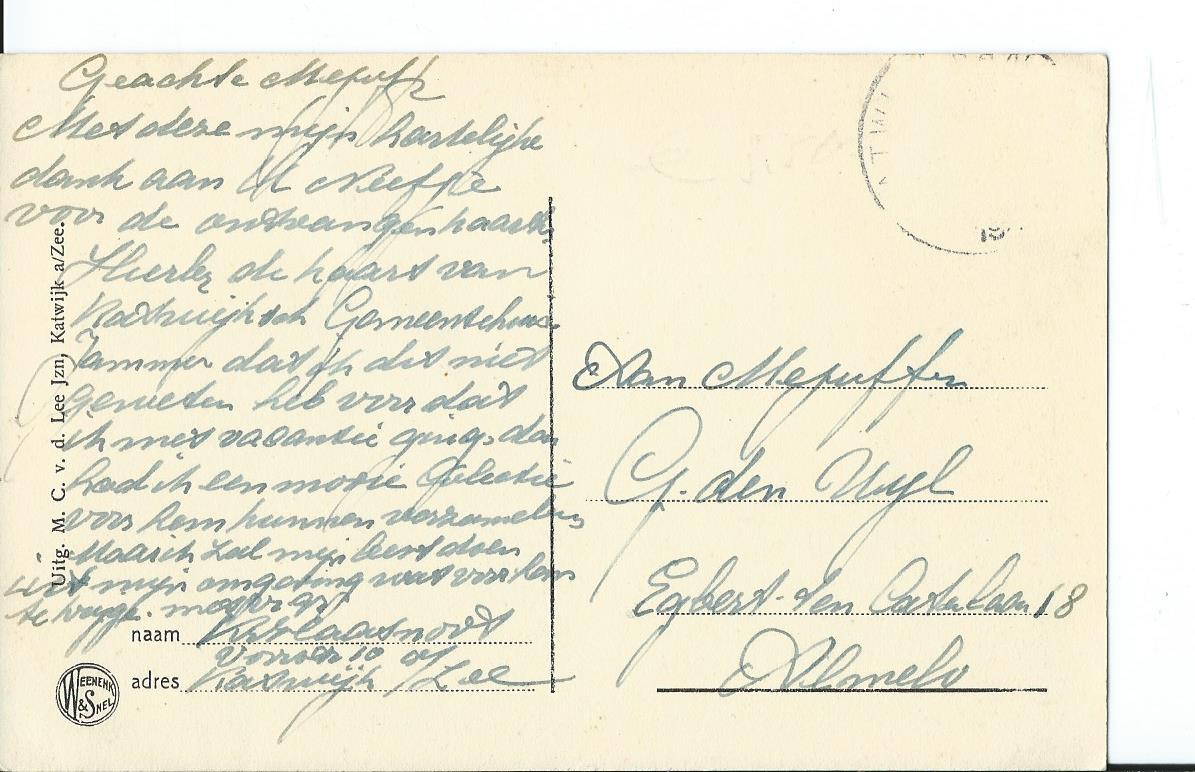 Geachte Mejuffr
Met deze mijn hartelijke
dank aan U Neefje
voor de ontvangen kaarte
Hierbij de kaart van
Katwijksch Gemeentehuis
Jammer dat ik dit niet
geweten heb voor dat
ik met vacantie ging, dan
had ik een mooie Collectie
voor hem kunnen verzamelen,
Maar ik zal mijn best doen
uit mijn omgeving wat voor hem
te
naam
adres Katwijk a/ Zee
Uitg. M. C. v. d. Lee Jzn, Katwijk a/Zee.
WEENENK & SNEL
Aan Mejuffr
G. den Uyl
Egbert ten Catelaan 18
Almelo